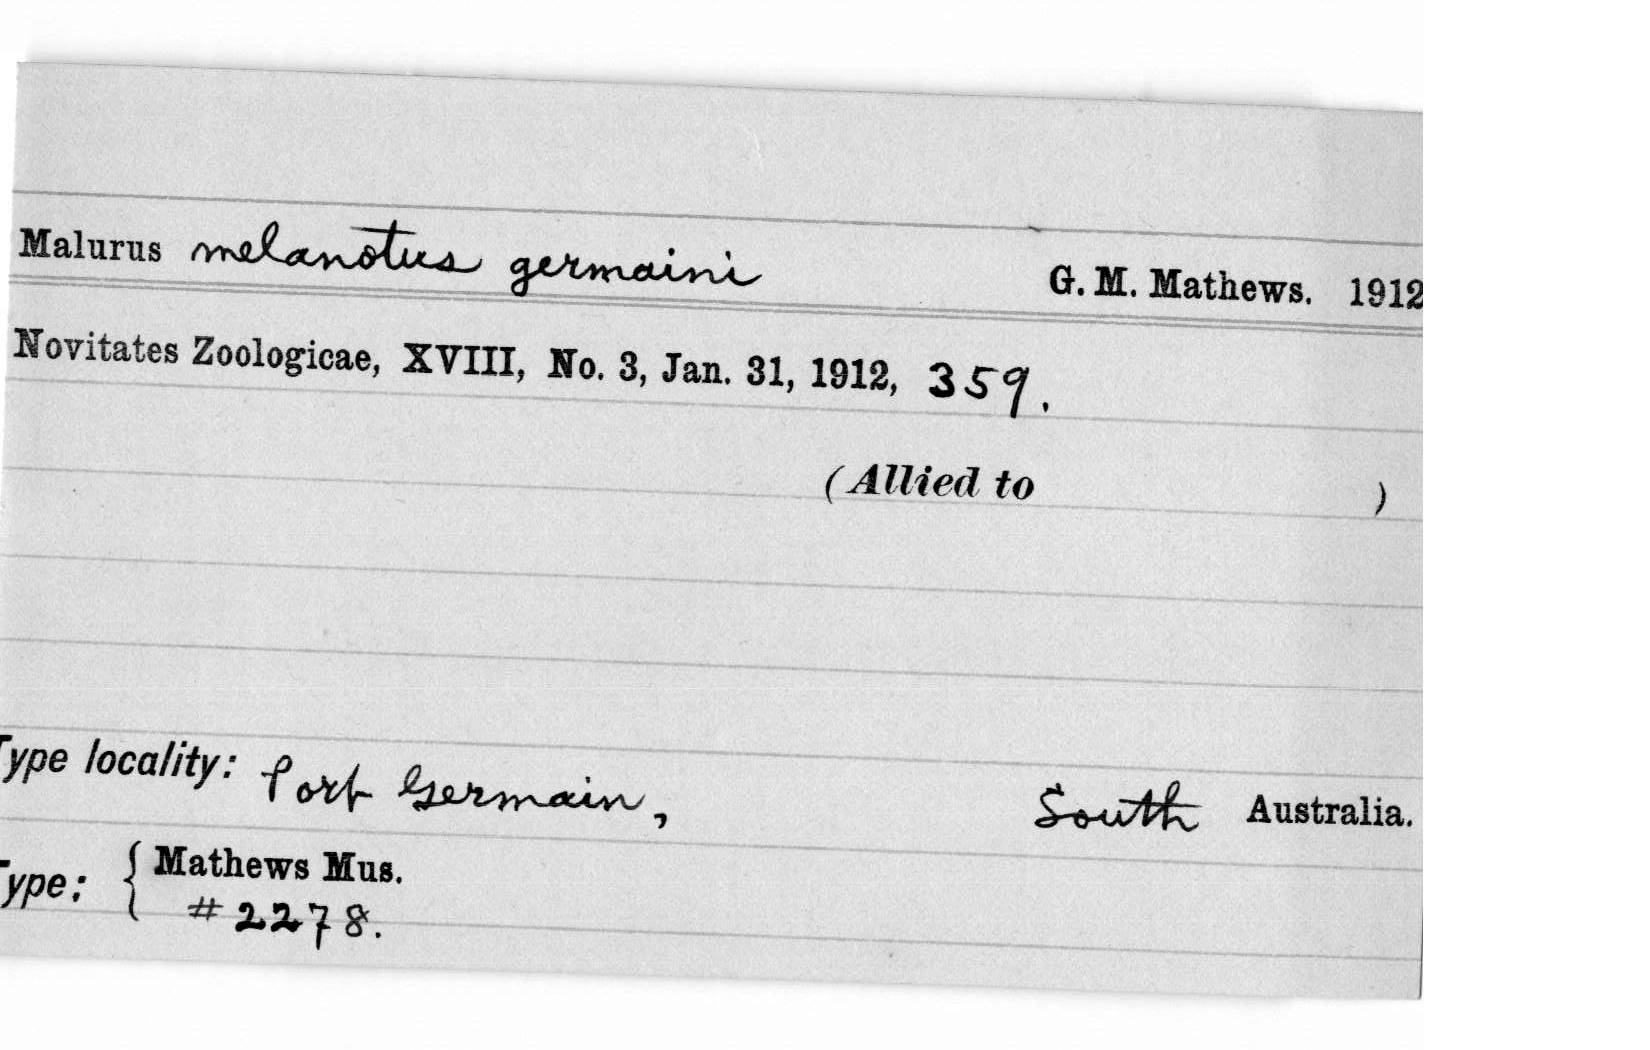 Malurus melanotus germaini G. M. Mathews. 1912
Novitates Zoologicae, XVIII, No. 3, Jan. 31, 1912, 359.
(Allied to )
Type locality: Port Germain, South Australia.
Type: { Mathews Mus.
# 2278.